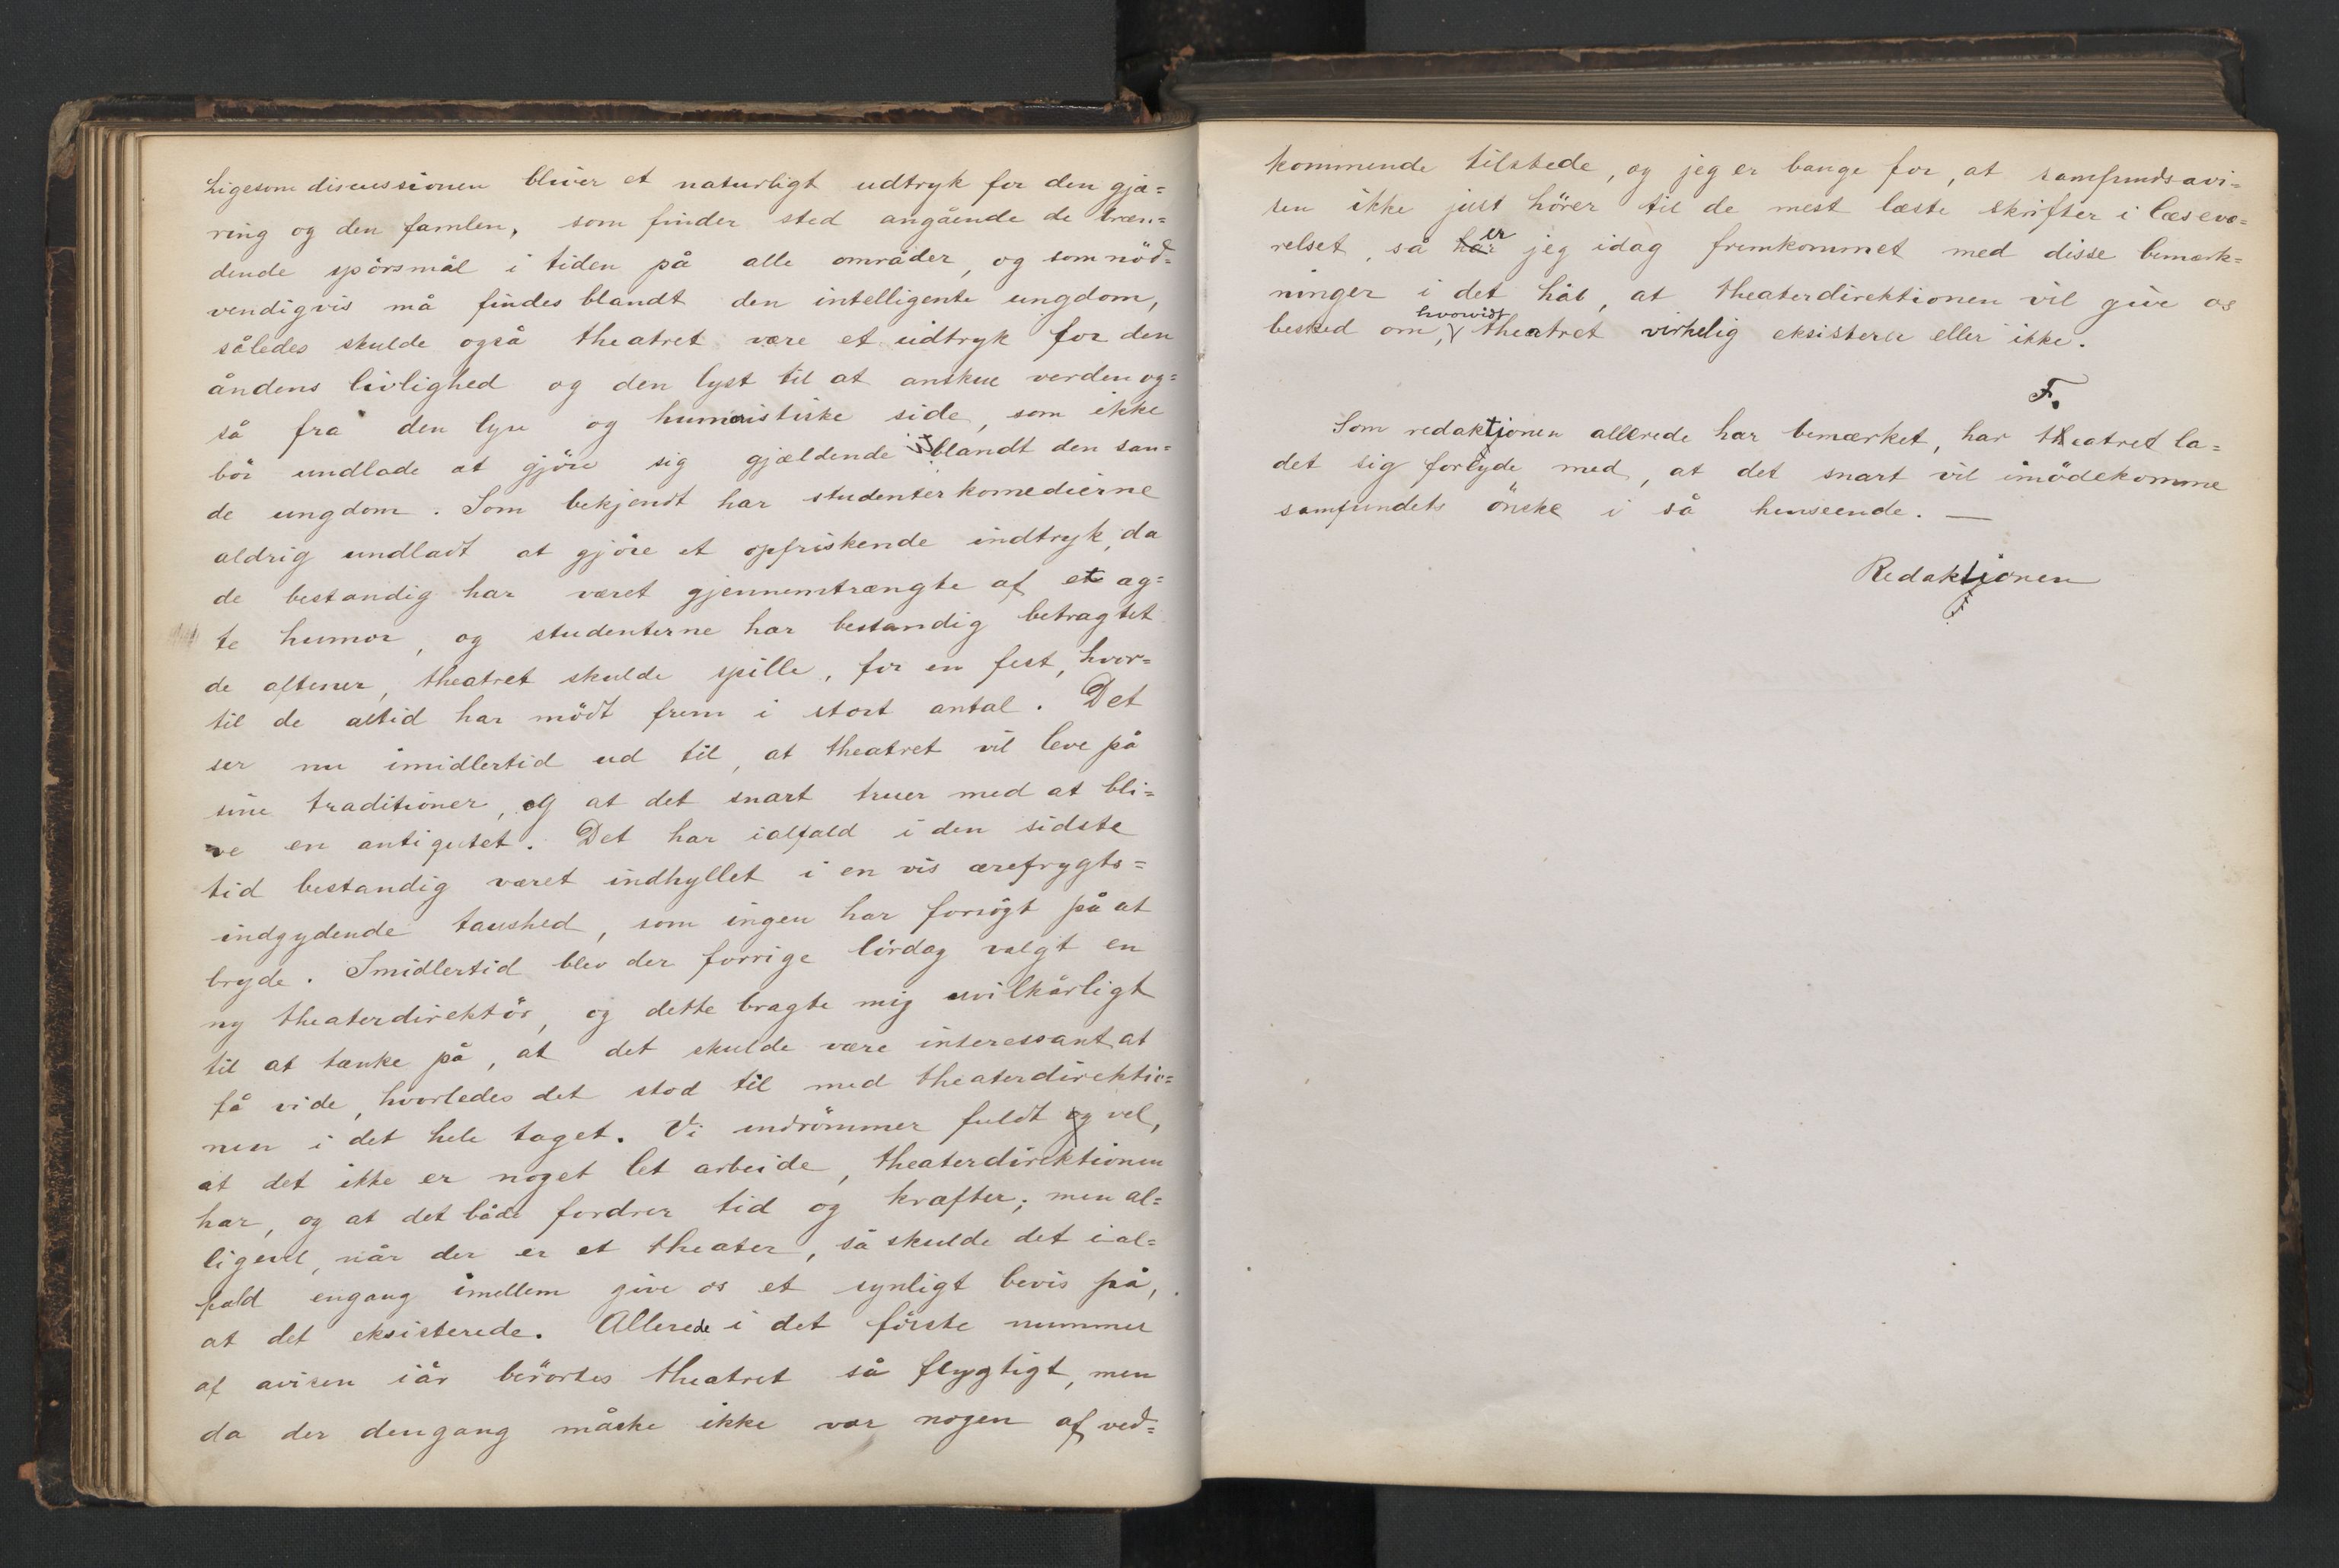 Ligesom discussionen bliver et naturligt udtryk for den gjæ=
ring og den famlen, som finder sted angående de bræn=
dende spörsmål i tiden på alle områder, og som nöd=
vendigvis må findes blandt den intelligente ungdom,
således skulde også theatret være et udtryk for den
åndens livlighed og den lyst til at anskue verden og=
så fra den lyse og humoristiske side, som ikke
bör undlade at gjöre sig gjældende blandt den san=
de ungdom. Som bekjendt har studenterkomedierne
aldrig undladt at gjöre et opfriskende indtryk, da
de bestandig har været gjennemtrængte af et æg=
te humor, og studenterne har bestandig betragtet
de aftener, theatret skulde spille, for en fest, hvor=
til de altid har mödt frem i stort antal. Det
ser nu imidlertid ud til, at theatret vil leve på
sine traditioner, og at det snart truer med at bli=
ve en antiqutet. Det har ialfald i den sidste
tid bestandig været indhyllet i en vis ærefrygts=
indgydende taushed, som ingen har forsögt på at
bryde. Imidlertid blev der forrige lördag valgt en
ny theaterdirektör, og dette bragte mig uvilkårligt
til at tænke på, at det skulde være interessant at
få vide, hvorledes det stod til med theaterdirektio=
nen i det hele taget. Vi indrömmer fuldt og vel,
at det ikke er noget let arbeide, theaterdirektionen
har, og at det både fordrer tid og kræfter; men al=
ligevel, når der er et theater, så skulde det ial=
fald engang imellem give os et synligt bevis på,
at det eksisterede. Allerede i det förste nummer
af avisen iår berörtes theatret så flygtigt, men
da der dengang måske ikke var nogen af ved=
kommende tilstede, og jeg er bange for, at samfundsavi=
sen ikke just hörer til de mest læste skrifter i læsevæ=
relset, så har er jeg idag fremkommet med disse bemærk=
ninger i det håb, at theaterdirektionen vil give os
besked om, hvorvidt theatret virkelig eksisterer eller ikke.
F.
Som redaktionen allerede har bemærket, har theatret la=
det sig forlyde med, at det snart vil imödekomme
samfundets önske i så henseende. —
Redaktionen